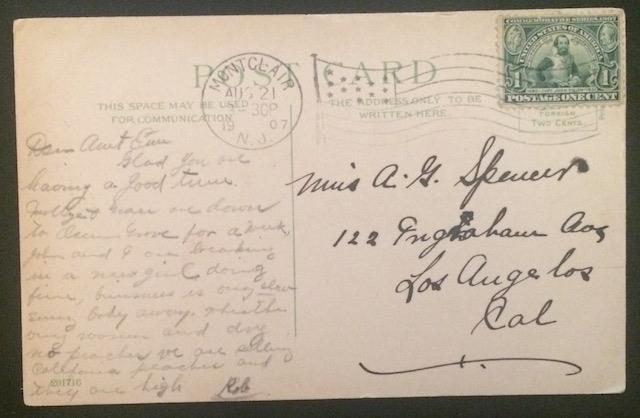 POST CARD
THIS SPACE MAY BE USED
FOR COMMUNICATION
THE ADDRESS ONLY TO BE
WRITTEN HERE.
MONTCLAIR
AUG 21
30P
1907
N.J.
COMMEMORATIVE SERIES 1907
UNITED STATES OF AMERICA
1 1
POSTAGE ONE CENT
FOREIGN
TWO CENTS.
Dear Aunt
Glad you are
having a good time.
are down
to Ocean Grove for a week,
John and I are breaking
in a new girl, doing
fine, business is only slow
body away.
women and dog
no peaches we are selling
California peaches and
they are high Rob
201716
Miss A. G. Spencer
122 Ingraham Ave
Los Angelos
Cal